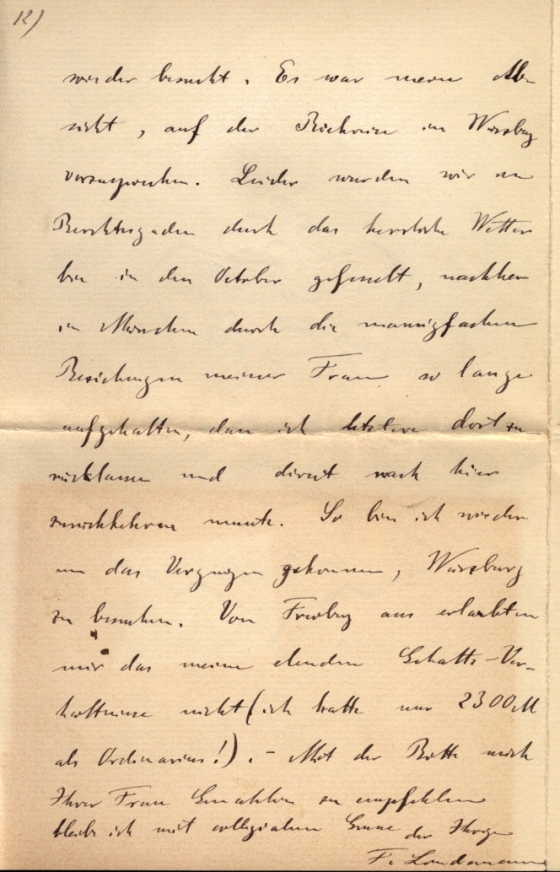 12)
wieder besucht. Es war meine Ab-
sicht, auf der Rückreise in Würzburg
vorzusprechen. Leider wurden wir in
Berchtesgaden durch das herrliche Wetter
bis in den October gefesselt, nachher
in München durch die mannigfachen
Beziehungen meiner Frau so lange
aufgehalten, dass ich letztere dort zu-
rücklassen und direct nach hier
zurückkehren musste. So bin ich wieder
um das Vergnügen gekommen, Würzburg
zu besuchen. Von Freiburg aus erlaubten
mir das meine elenden Gehalts-Ver-
hältnisse nicht (ich hatte nur 2300 M
als Ordinarius!). - Mit der Bitte mich
Ihrer Frau Gemahlin zu empfehlen
bleibe ich mit collegialem Grusse der Ihrige
F. Lindemann